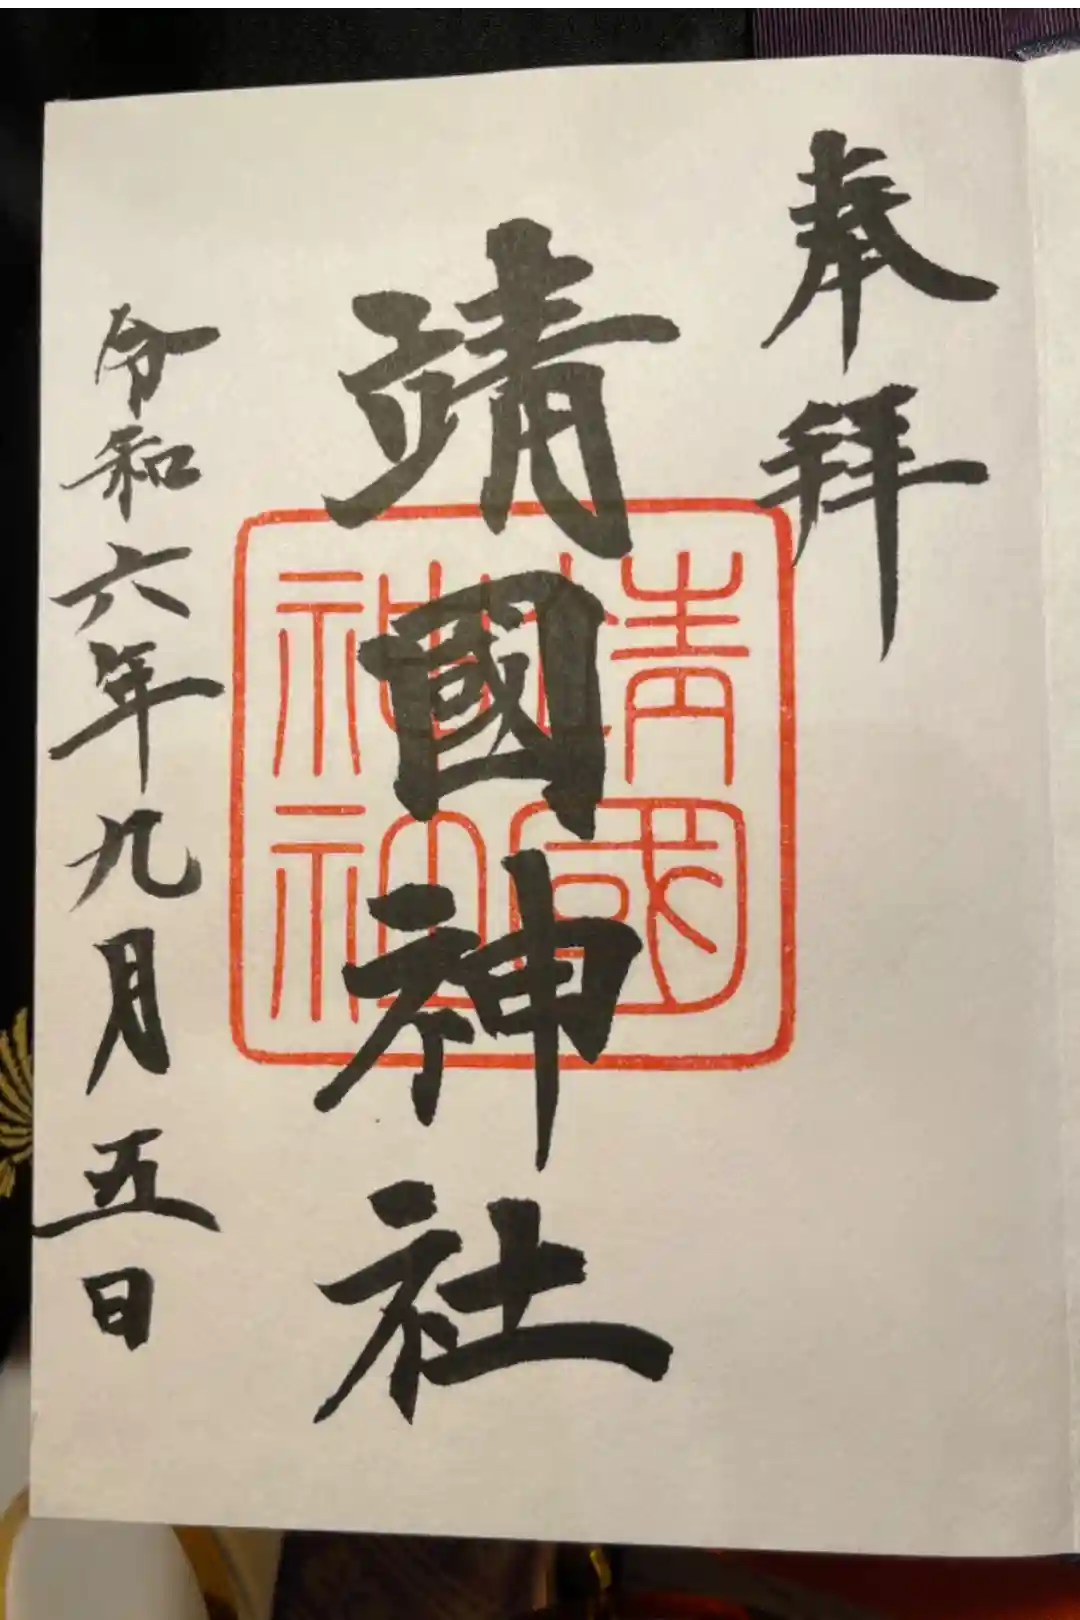 奉拝
靖國神社
靖國神社
令和六年九月五日